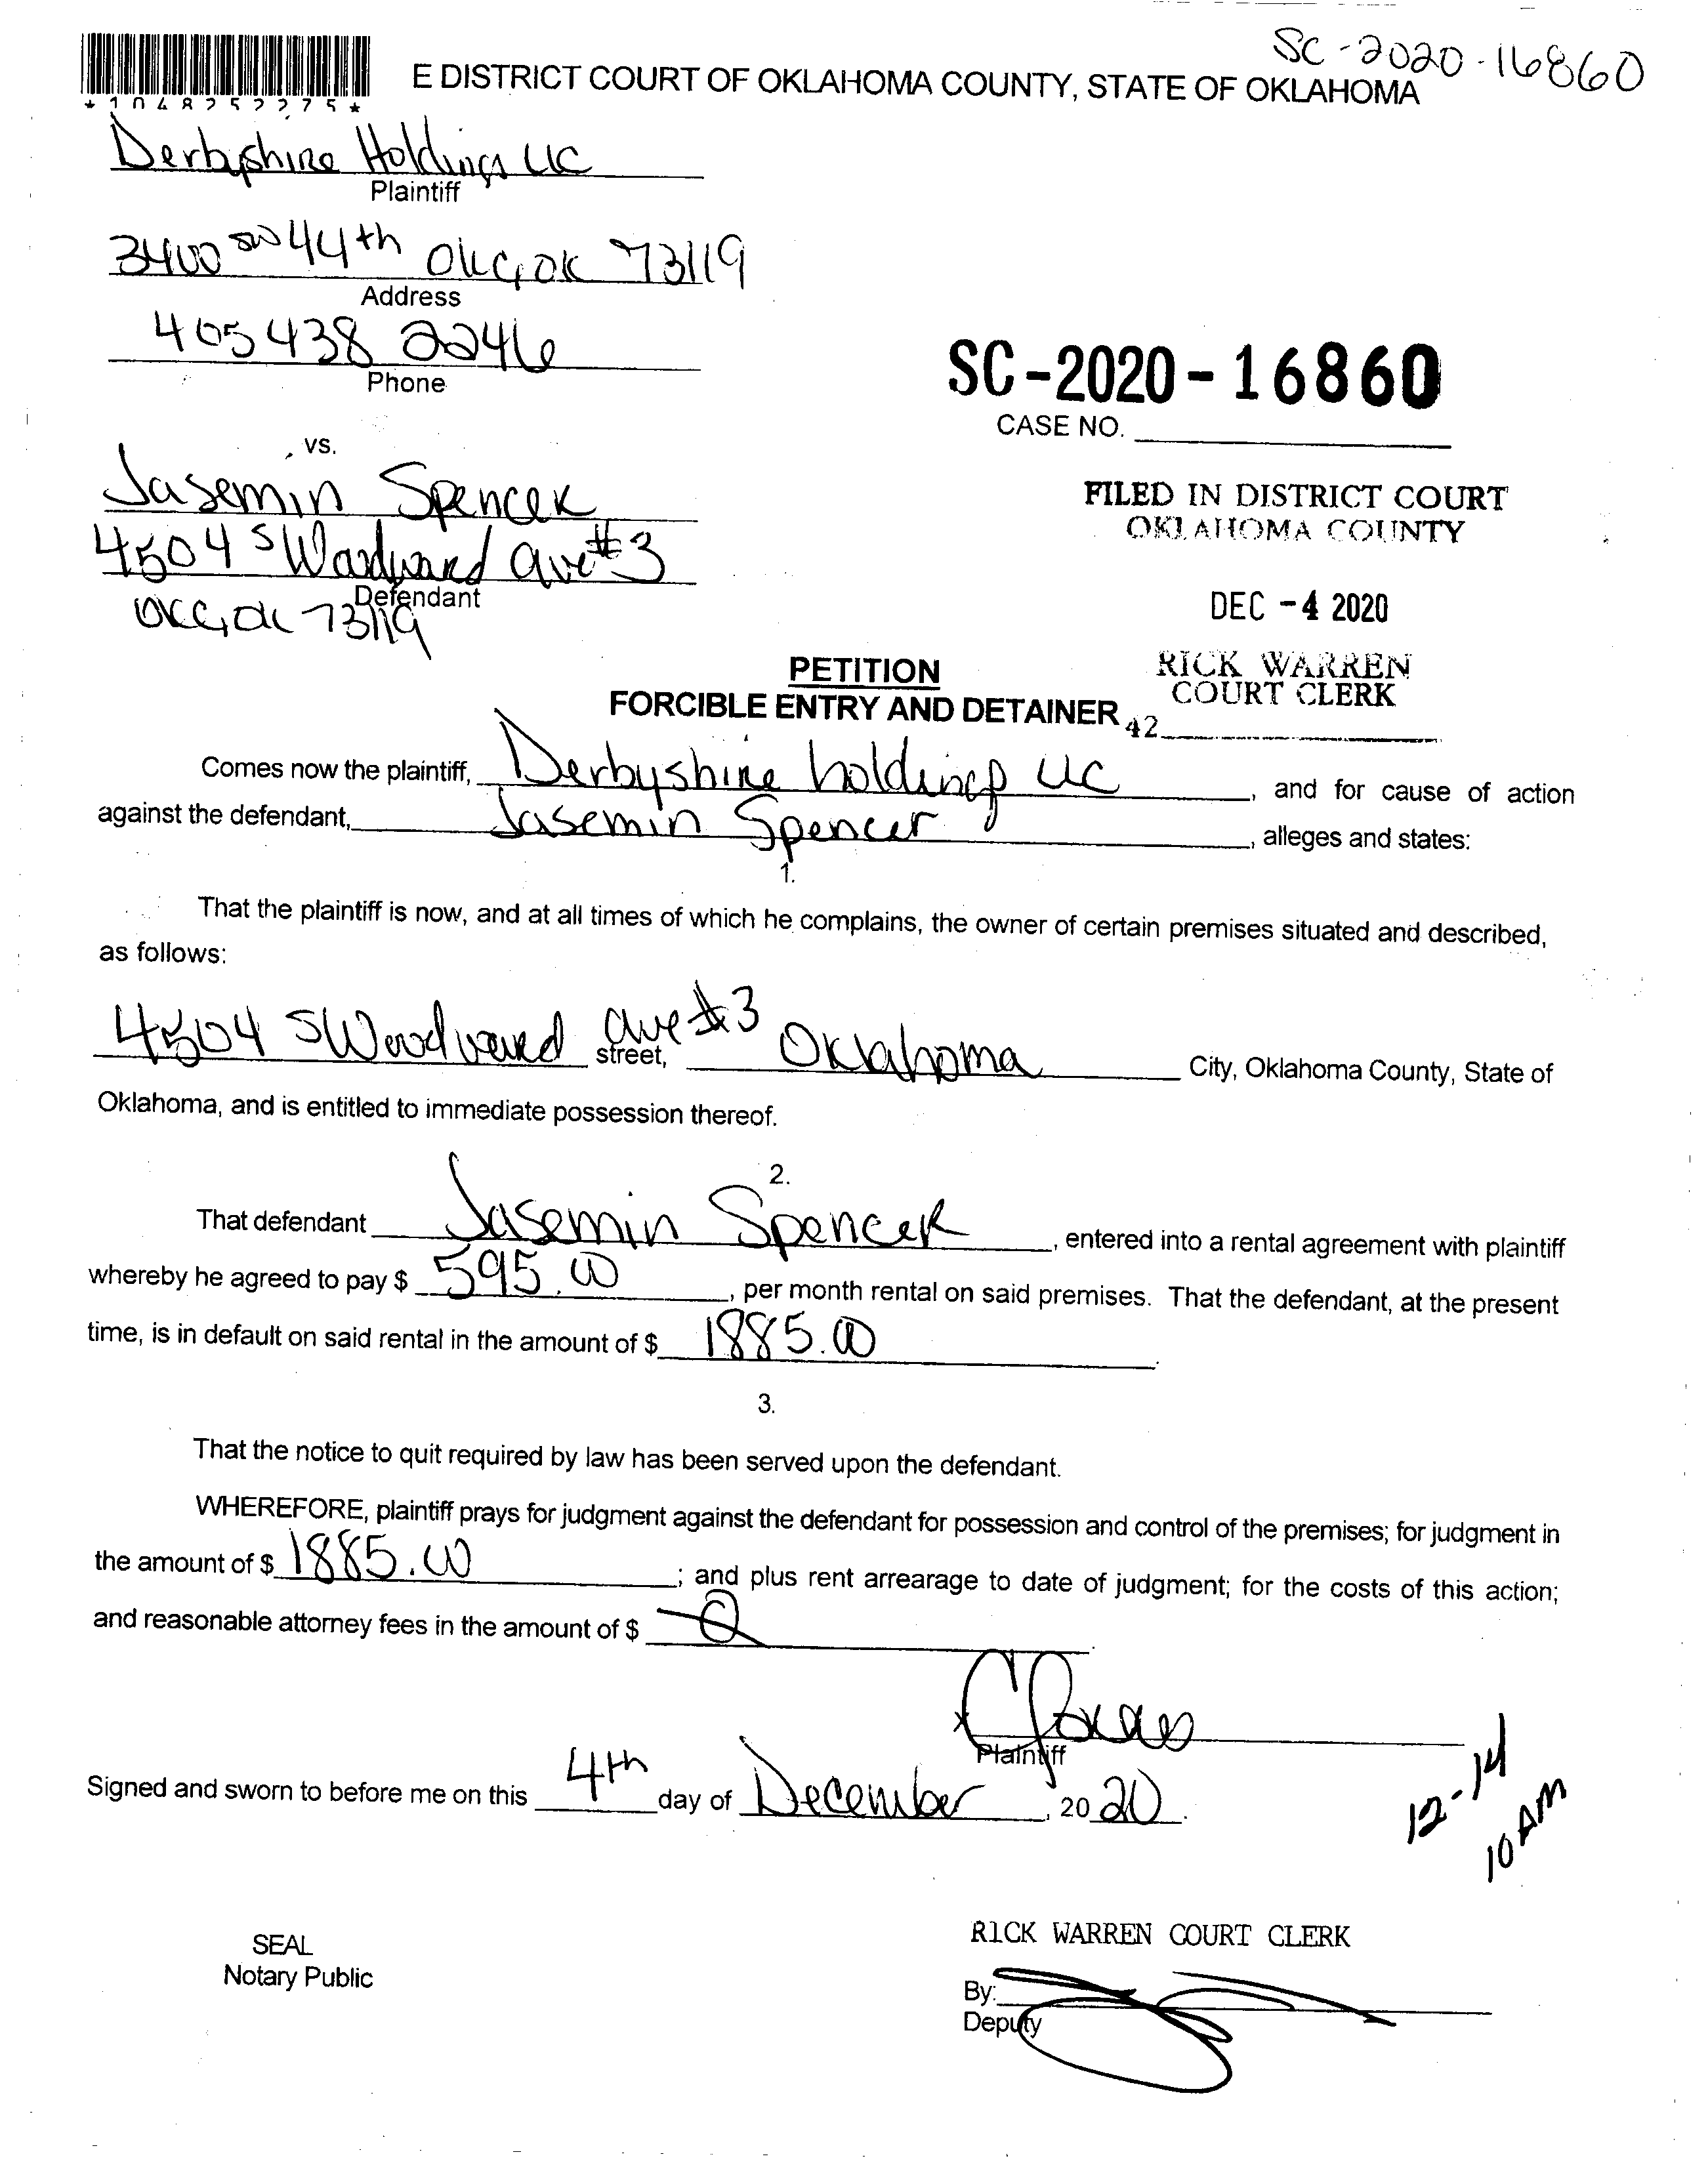 SC-2020-16860
*1048252275*
E DISTRICT COURT OF OKLAHOMA COUNTY, STATE OF OKLAHOMA
Derbyshire Holdings LLC
Plaintiff
3400 SW 44th OKC, OK 73119
Address
405 438 2246
Phone
SC-2020-16860
CASE NO.
vs.
Jasemin Spencer
4504 S Woodward Ave #3
Defendant
OKC, OK 73119
FILED IN DISTRICT COURT
OKLAHOMA COUNTY
DEC -4 2020
RICK WARREN
COURT CLERK
42
PETITION
FORCIBLE ENTRY AND DETAINER
Comes now the plaintiff, Derbyshire holdings LLC, and for cause of action
against the defendant, Jasemin Spencer, alleges and states:
1.
That the plaintiff is now, and at all times of which he complains, the owner of certain premises situated and described,
as follows:
4504 S Woodward Ave #3 street, Oklahoma City, Oklahoma County, State of
Oklahoma, and is entitled to immediate possession thereof.
2.
That defendant Jasemin Spencer, entered into a rental agreement with plaintiff
whereby he agreed to pay $ 595.00, per month rental on said premises. That the defendant, at the present
time, is in default on said rental in the amount of $ 1885.00.
3.
That the notice to quit required by law has been served upon the defendant.
WHEREFORE, plaintiff prays for judgment against the defendant for possession and control of the premises; for judgment in
the amount of $ 1885.00; and plus rent arrearage to date of judgment; for the costs of this action;
and reasonable attorney fees in the amount of $ 0.
x
Plaintiff
Signed and sworn to before me on this 4th day of December, 2020.
12-14
10 AM
SEAL
Notary Public
RICK WARREN COURT CLERK
By:
Deputy